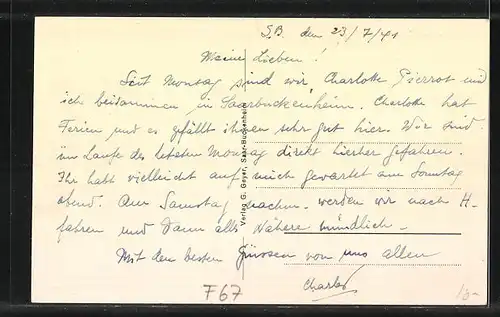 S.B. den 23/7/41
Meine Lieben!
Seit Montag sind wir, Charlotte Pierrot und
ich beisammen in Saarbuckenheim. Charlotte hat
Ferien und es gefällt ihnen sehr gut hier. Wir sind
im Laufe des letzten Montag direkt hierher gefahren.
Ihr habt vielleicht auf mich gewartet am Sonntag
abend. Am Samstag werden wir nach H-
fahren und dann alles Nähere mündlich.
Mit den besten Grüssen von uns allen
Charles
Verlag G. Geyer, Saar-Buckenheim
F67